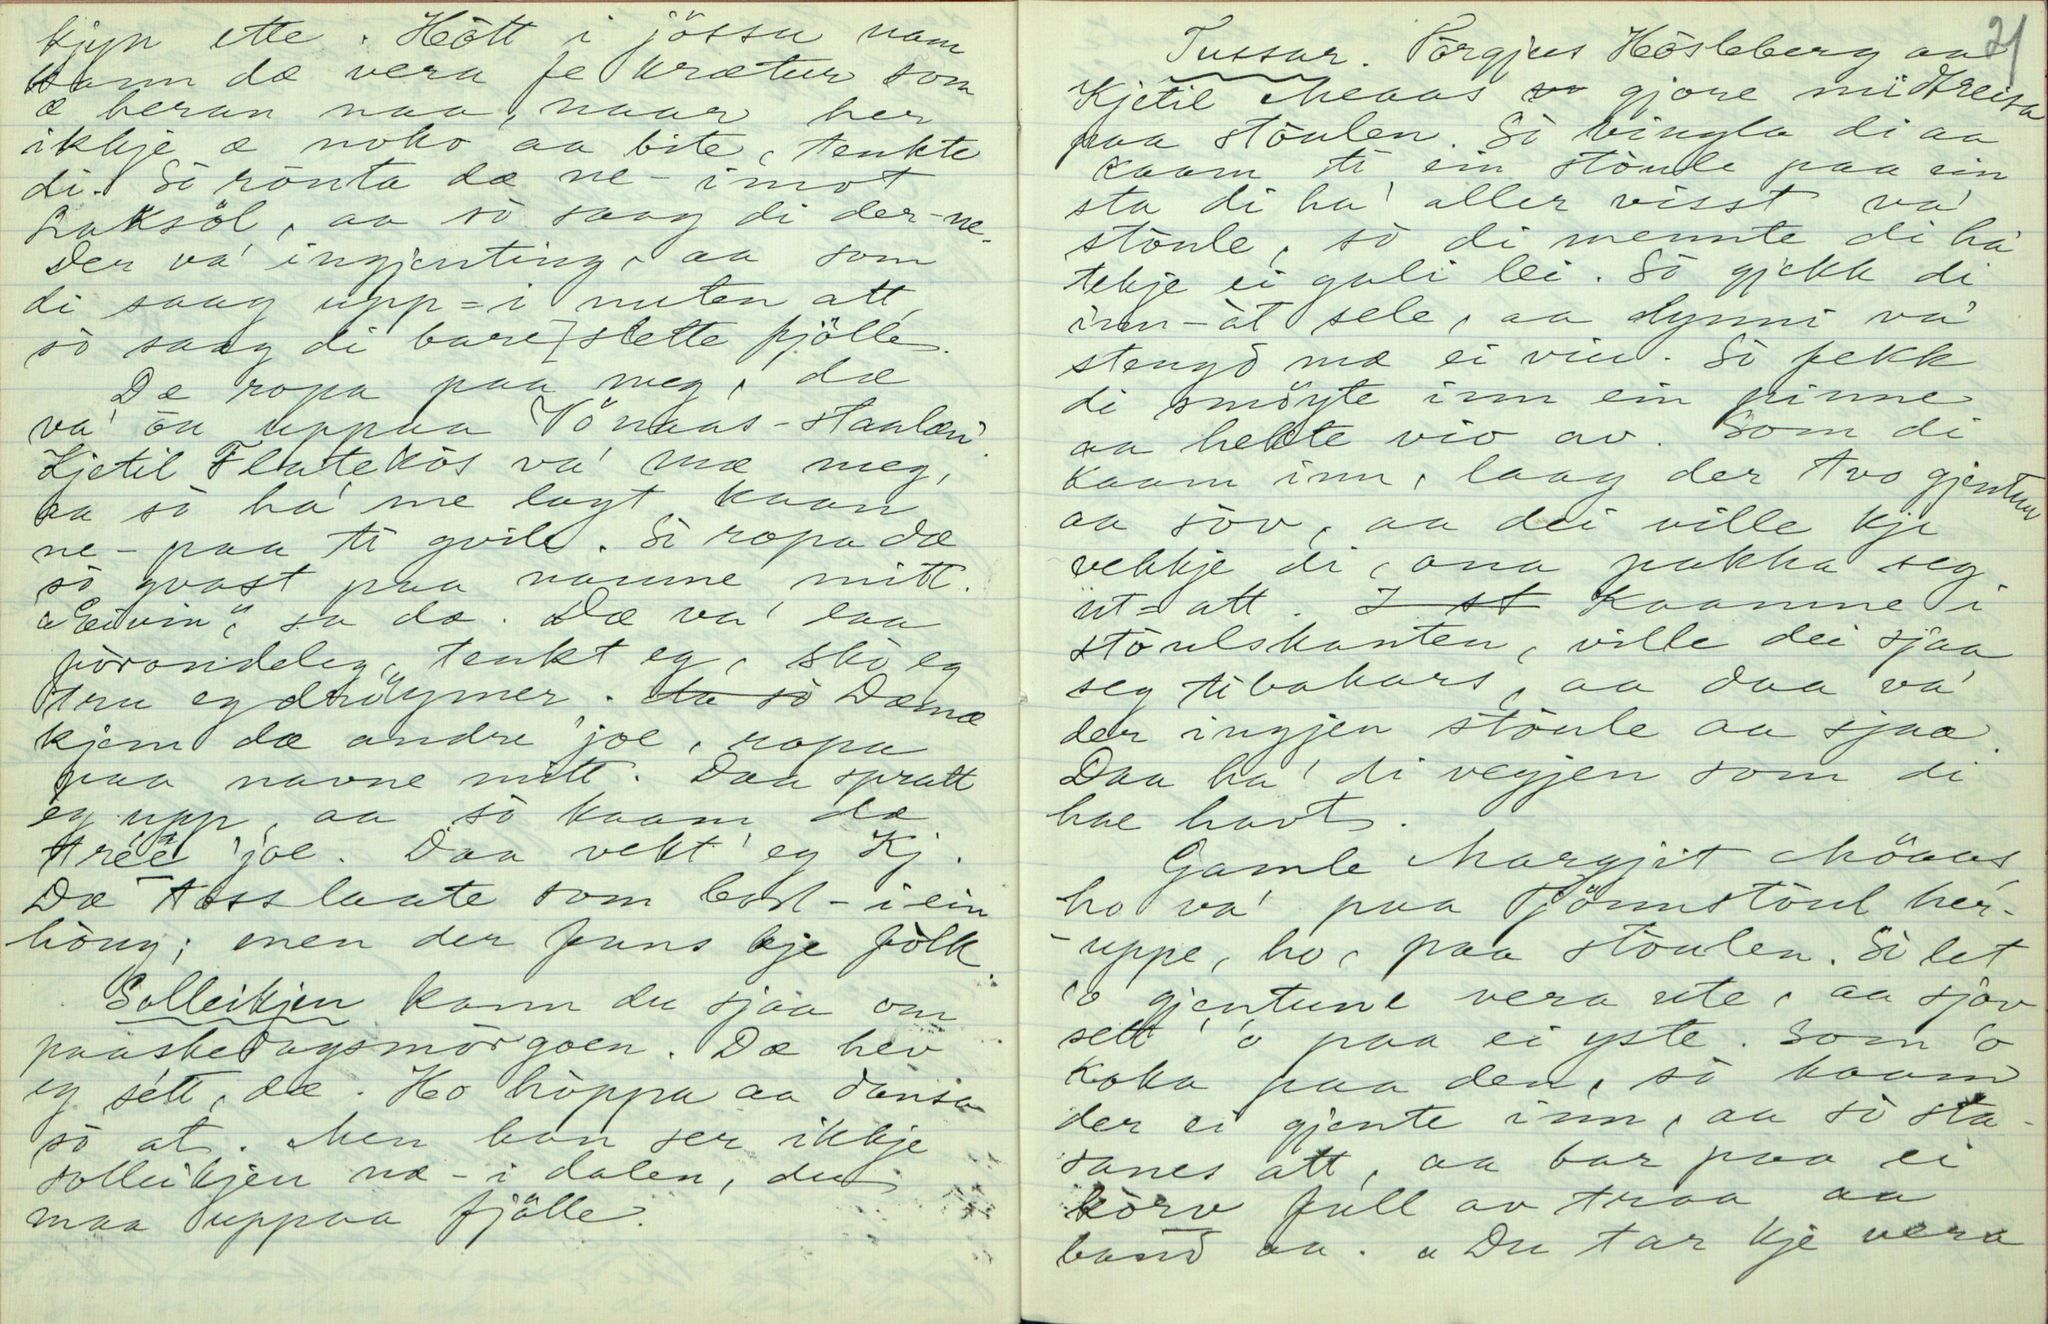 kjyn ette. Hött i jössu nam
kann dæ vera fe krætur som
æ heran naa, naar her
ikkje æ noko aa bite, tenkte
di. Sò rönta dæ ne-imot
Laksöl, aa sò saag di der-ne.
Der va' ingjenting, aa som
di saag upp=i nuten att
sò saag di bare slette fjölle.
De ropa paa meg, dæ
va' òu uppaa Vönaas-staulæn.
Kjetil Flatekòs va' mæ meg,
aa sò ha' me lagt kaan
ne-paa ti gvile. Si ropa dæ
sò gvast paa namne mitt.
"Eivin", sa dæ. Dæ va' laa
fòrondeleg, tenkt eg, skò eg
tru eg dröymer. Ma sò Dæmæ
kjem dæ andre 'joe, ropa
paa navne mitt. Daa spratt
eg upp, aa sò kaam dæ
tréë 'joe. Daa vekt' eg Kj.
Dæ toss laate som bort-i ein
höug; men der funs kje fölk.
Solleikjen kann du sjaa om
paaskedagsmòrgoen. Dæ hev
eg sétt, dæ. Ho hòppa aa dansa
sò at. Men han ser ikkje
solleikjen næ-i dalen, du
maa uppaa fjölle.
21
Tussar. Törgjus Hösleberg aa
Kjetil Meaas so gjore miðtreisa
paa stòulen. Sò vingla di aa
kaam ti ein stòule paa ein
sta di ha' aller visst va'
stòule, sò di mennte di ha'
tekje ei gali lei. Sò gjekk di
inn-àt sele, aa dynni va'
stengd mæ ei viu. Sò fekk
di smöyte inn ein pinne
aa hekte vio av. Som di
kaam inn, laag der tvo gjentur
aa sòv, aa dei ville kje
vekkje di, ona pakka seg
ut=att. I st Kaamne i
stòulskanten, ville dei sjaa
seg tibakars, aa daa va'
der ingjen stòule aa sjaa.
Daa ha' di vegjen som di
hae havt.
Gamle Margjit Möaas,
ho va' paa Tjönnstòul her-
-uppe, ho, paa stòulen. Sò let
'o gjentune vera ute, aa sjòv
sett' 'o paa ei yste. Som 'o
koka paa den, sò kaam
der ei gjente inn, aa sò sta-
sanes att, aa bar paa ei
kòrv full av traa aa
band aa. "Du tar kje vera